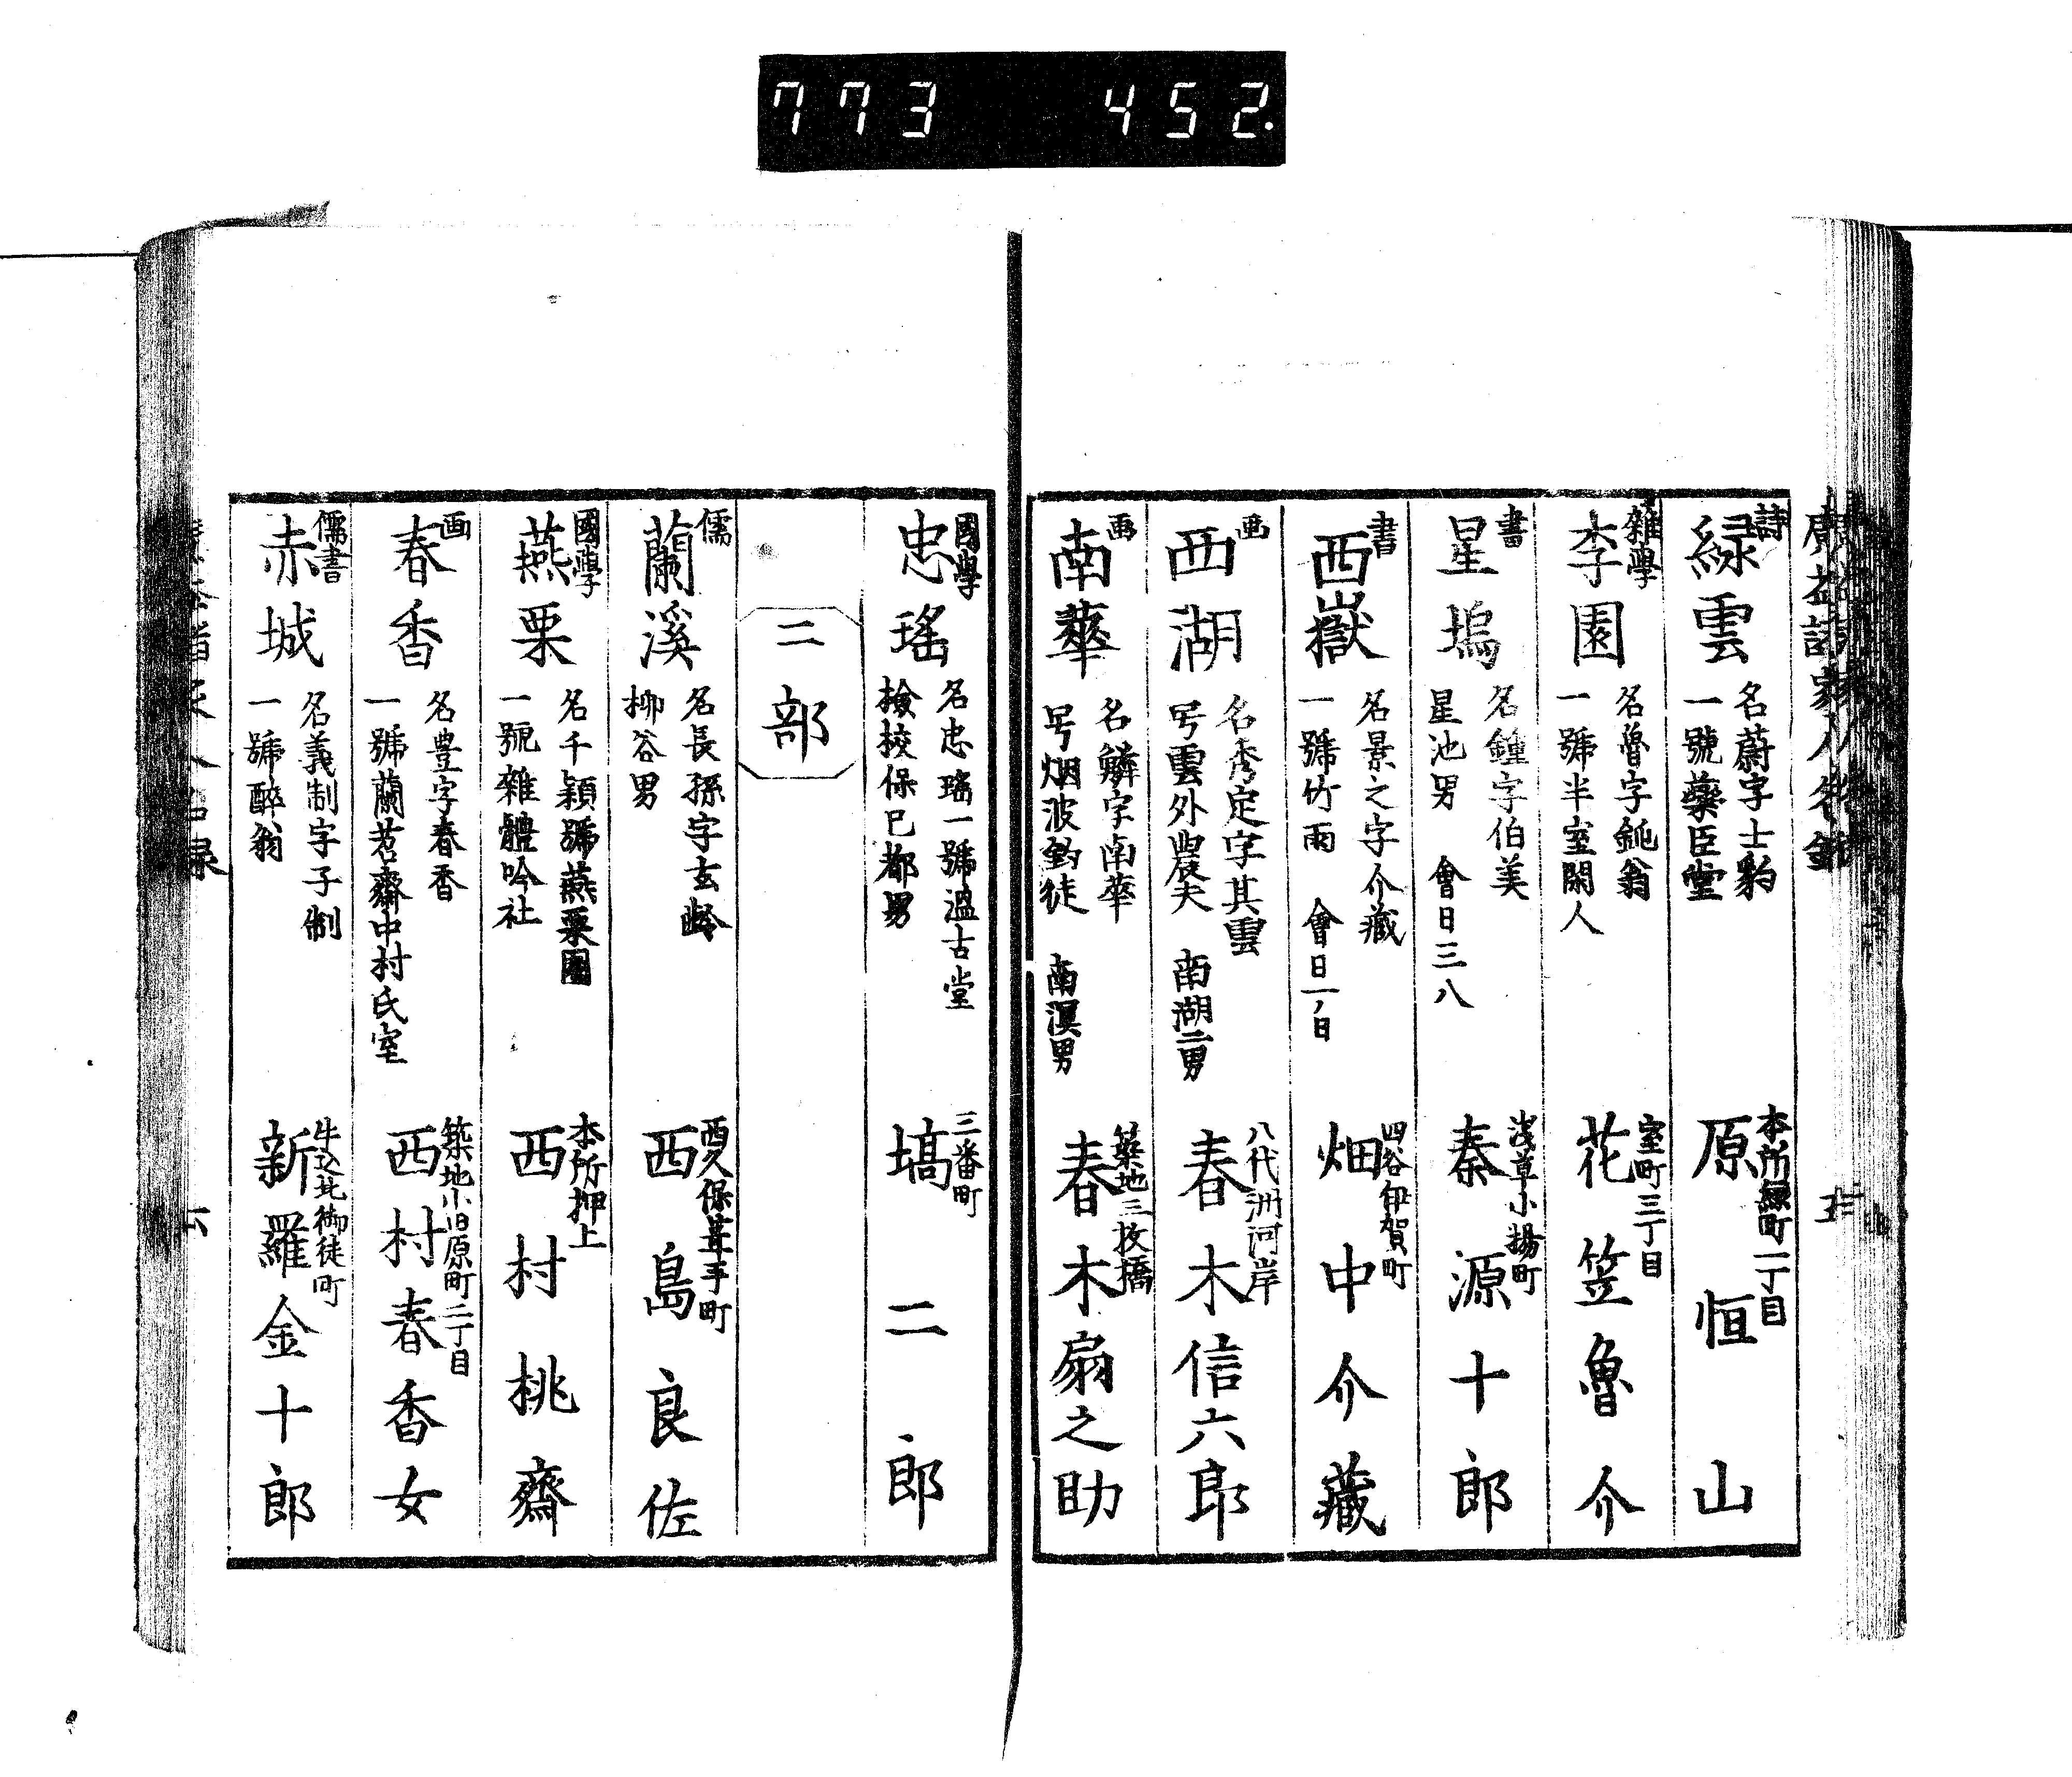 773 452.
詩
緑雲
名蔚字士豹
一號藥臣堂
本所緑町一丁目
原恒山
雜學
李園
名魯字鈍翁
一號半室閑人
室町三丁目
花笠魯介
書
星塢
名鐘字伯美
星池男 會日三八
浅草小揚町
秦源十郎
書
西嶽
名景之字介藏
一號竹雨 會日一ノ日
四谷伊賀町
畑中介藏
画
西湖
名秀定字其雲
号雲外農夫 南湖二男
八代洲河岸
春木信六郎
画
南華
名鱗字南華
号烟波釣徒 南溟男
築地三枚橋
春木扇之助
國學
忠瑤
名忠瑤一號温古堂
撿挍保己都男
三番町
塙二郎
二部
儒
蘭溪
名長孫字玄齡
柳谷男
西久保葺手町
西島良佐
國學
燕栗
名千穎號燕栗園
一號雜體吟社
本所押上
西村桃齋
画
春香
名豊字春香
一號蘭若齋中村氏室
築地小田原町二丁目
西村春香女
儒書
赤城
名義制字子制
一號醉翁
牛込北御徒町
新羅金十郎